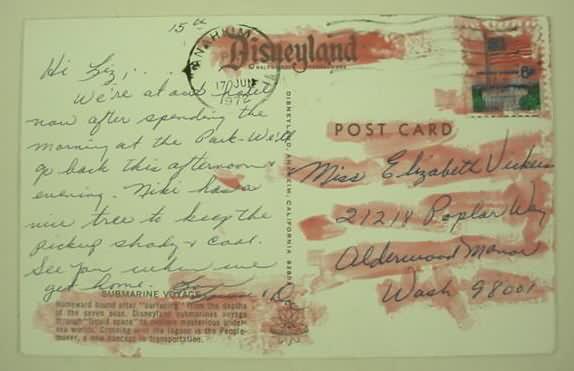 15th
Hi Liz,...
We're at our hotel
now after spending the
morning at the Park - We'll
go back this afternoon &
evening. Niki has a
nice tree to keep the
pickup shady & cool.
See you when we
get home.
SUBMARINE VOYAGE
Homeward bound after "surfacing" from the depths
of the seven seas, Disneyland submarines voyage
through "liquid space" to explore mysterious under-
sea worlds. Crossing over the lagoon is the People-
mover, a new concept in transportation.
ANAHEIM
17 JUN
1972
Disneyland
DISNEYLAND, ANAHEIM, CALIFORNIA
6c
POST CARD
Miss Elizabeth Vickers
21218 Poplar Way
Alderwood Manor
Wash 98001